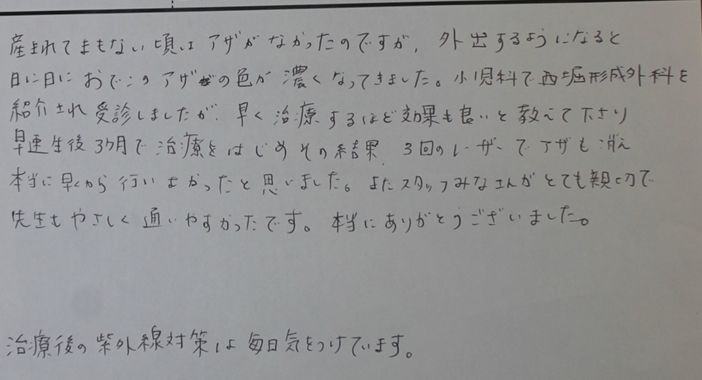 産まれてまもない頃はアザがなかったのですが、外出するようになると
日に日におでこのアザの色が濃くなってきました。小児科で西堀形成外科を
紹介され受診しましたが、早く治療するほど効果も良いと教えて下さり
早速生後3ヶ月で治療をはじめその結果、3回のレーザーでアザも消え
本当に早くから行いよかったと思いました。またスタッフみなさんがとても親切で
先生もやさしく通いやすかったです。本当にありがとうございました。
治療後の紫外線対策は毎日気をつけています。